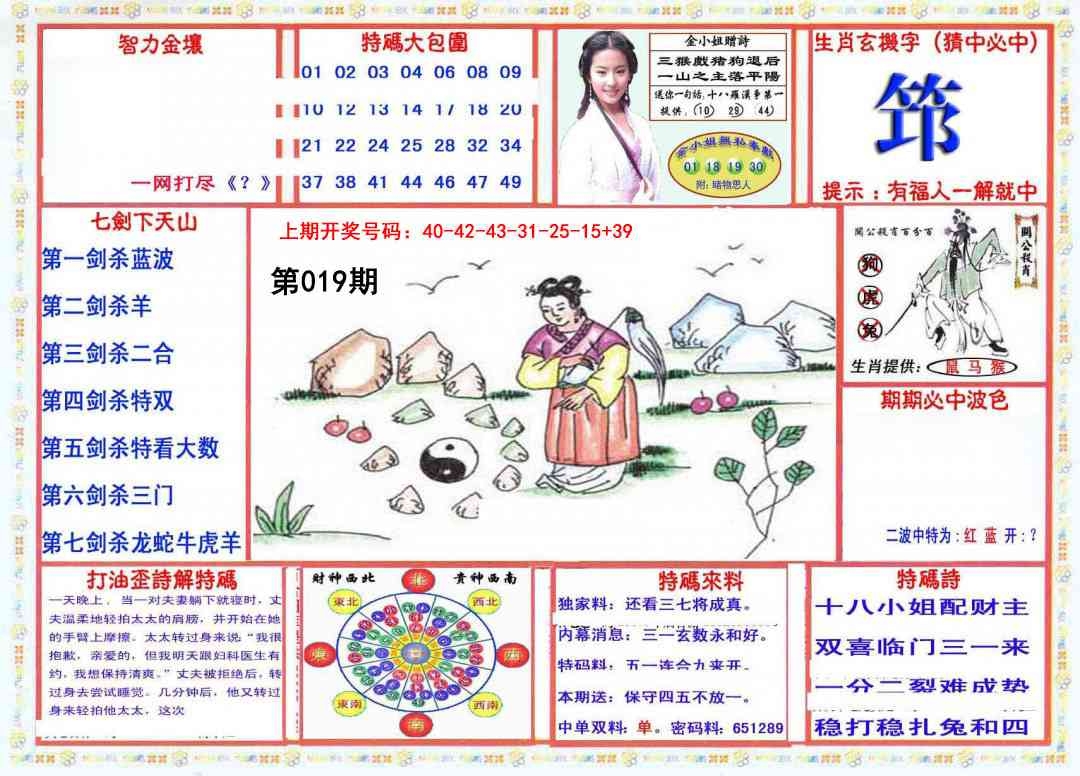 智力金壤
一网打尽《？》
特碼大包圍
01 02 03 04 06 08 09
10 12 13 14 17 18 20
21 22 24 25 28 32 34
37 38 41 44 46 47 49
金小姐贈詩
三猴戲猪狗退后
一山之主落平陽
送你一句話,十八羅漢爭第一
提供:(10 29 44)
金小姐無私奉獻
01 18 19 30
附:睹物思人
生肖玄機字（猜中必中）
筇
提示：有福人一解就中
七劍下天山
第一剑杀蓝波
第二剑杀羊
第三剑杀二合
第四剑杀特双
第五剑杀特看大数
第六剑杀三门
第七剑杀龙蛇牛虎羊
上期开奖号码：40-42-43-31-25-15+39
第019期
關公殺肖百分百
關公殺肖
狗
虎
兔
生肖提供：鼠 马 猴
期期必中波色
二波中特为:红 蓝 开:?
打油歪詩解特碼
一天晚上，当一对夫妻躺下就寝时，丈
夫温柔地轻拍太太的肩膀，并开始在她
的手臂上摩擦。太太转过身来说“我很
抱歉，亲爱的，但我明天跟妇科医生有
约，我想保持清爽。”丈夫被拒绝后，转
过身去尝试睡觉。几分钟后，他又转过
身来轻拍他太太，这次
財神西北
貴神西南
北
東北
西北
東
西
東南
西南
南
特碼來料
独家料：还看三七将成真。
内幕消息：三一玄数永和好。
特码料：五一连合九来开。
本期送：保守四五不放一。
中单双料：单。密码料：651289
特碼詩
十八小姐配财主
双喜临门三一来
一分二裂难成势
稳打稳扎兔和四